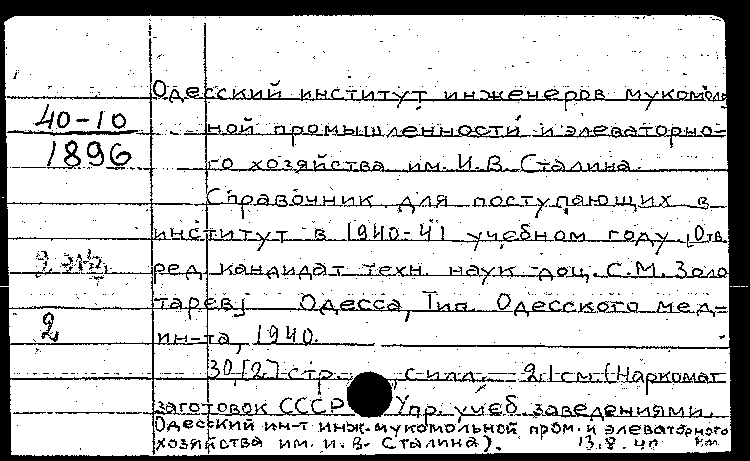 Одесский институт инженеров мукомоль
40-10
ной промышленности и элеваторно-
1896
го хозяйства им. И.В. Сталина.
Справочник для поступающих в
институт в 1940-41 учебном году. [Отв.
2 экз.
ред. кандидат техн. наук доц. С.М. Золо
тарев] Одесса, Тип. Одесского мед-
2
ин-та, 1940.
30, [2] стр. , с илл. 21 см. (Наркомат
заготовок СССР Упр. учеб. заведениями.
Одесский ин-т инж. мукомольной пром. и элеваторного
хозяйства им. И. В. Сталина). 13.8.40